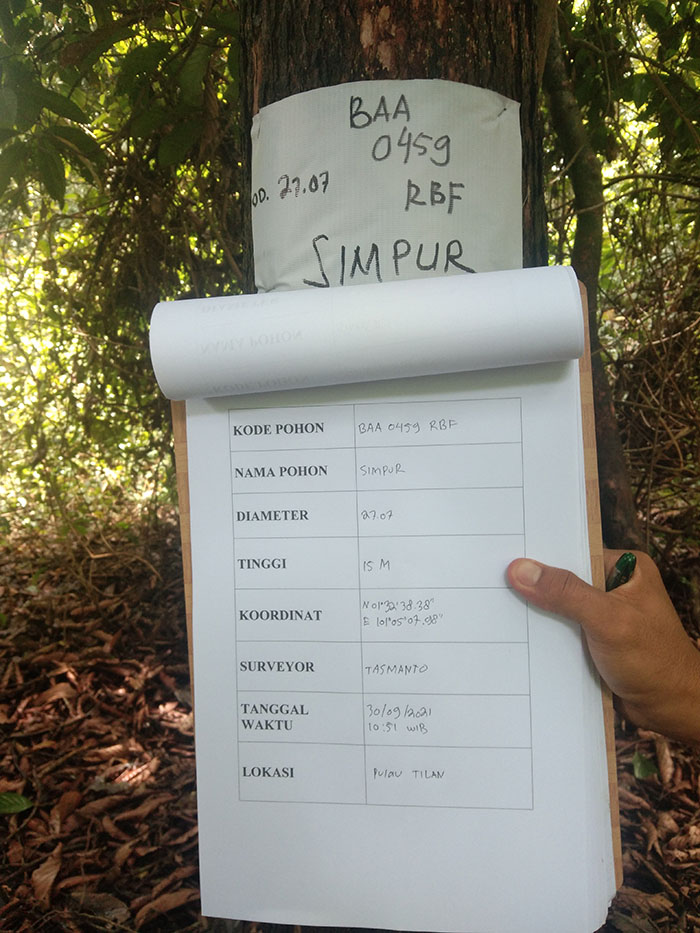 BAA
0459
OD. 27.07
RBF
SIMPUR
NAMA POHON
KODE POHON BAA 0459 RBF
NAMA POHON SIMPUR
DIAMETER 27.07
TINGGI 15 M
KOORDINAT N 01°32'38.38"
E 101°05'07.98"
SURVEYOR TASMANTO
TANGGAL 30/09/2021
WAKTU 10:51 WIB
LOKASI PULAU TILAN